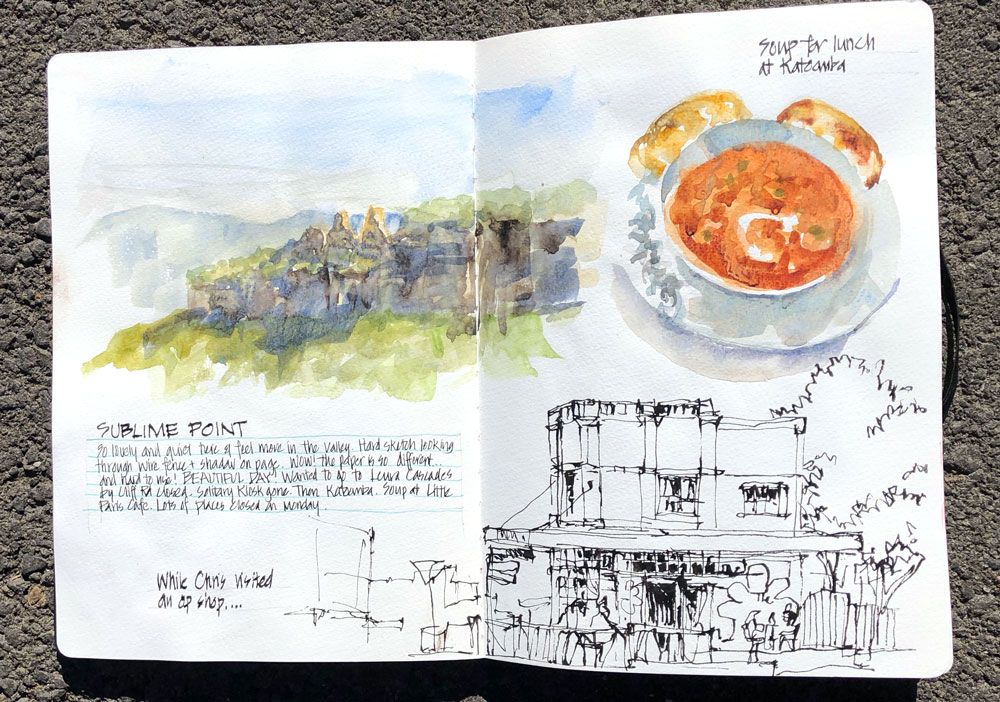 SUBLIME POINT
So lovely and quiet here & feel more in the valley. Hard sketch looking
through wire fence + shadow on page. WOW! the paper is so different..
and hard to use! BEAUTIFUL DAY! Wanted to go to Leura Cascades
by Cliff Rd closed. Solitary Kiosk gone. Then Katoomba. Soup at Little
Paris Cafe. Lots of places closed on Monday.
While Chris visited
an op shop....
Soup for lunch
at Katoomba